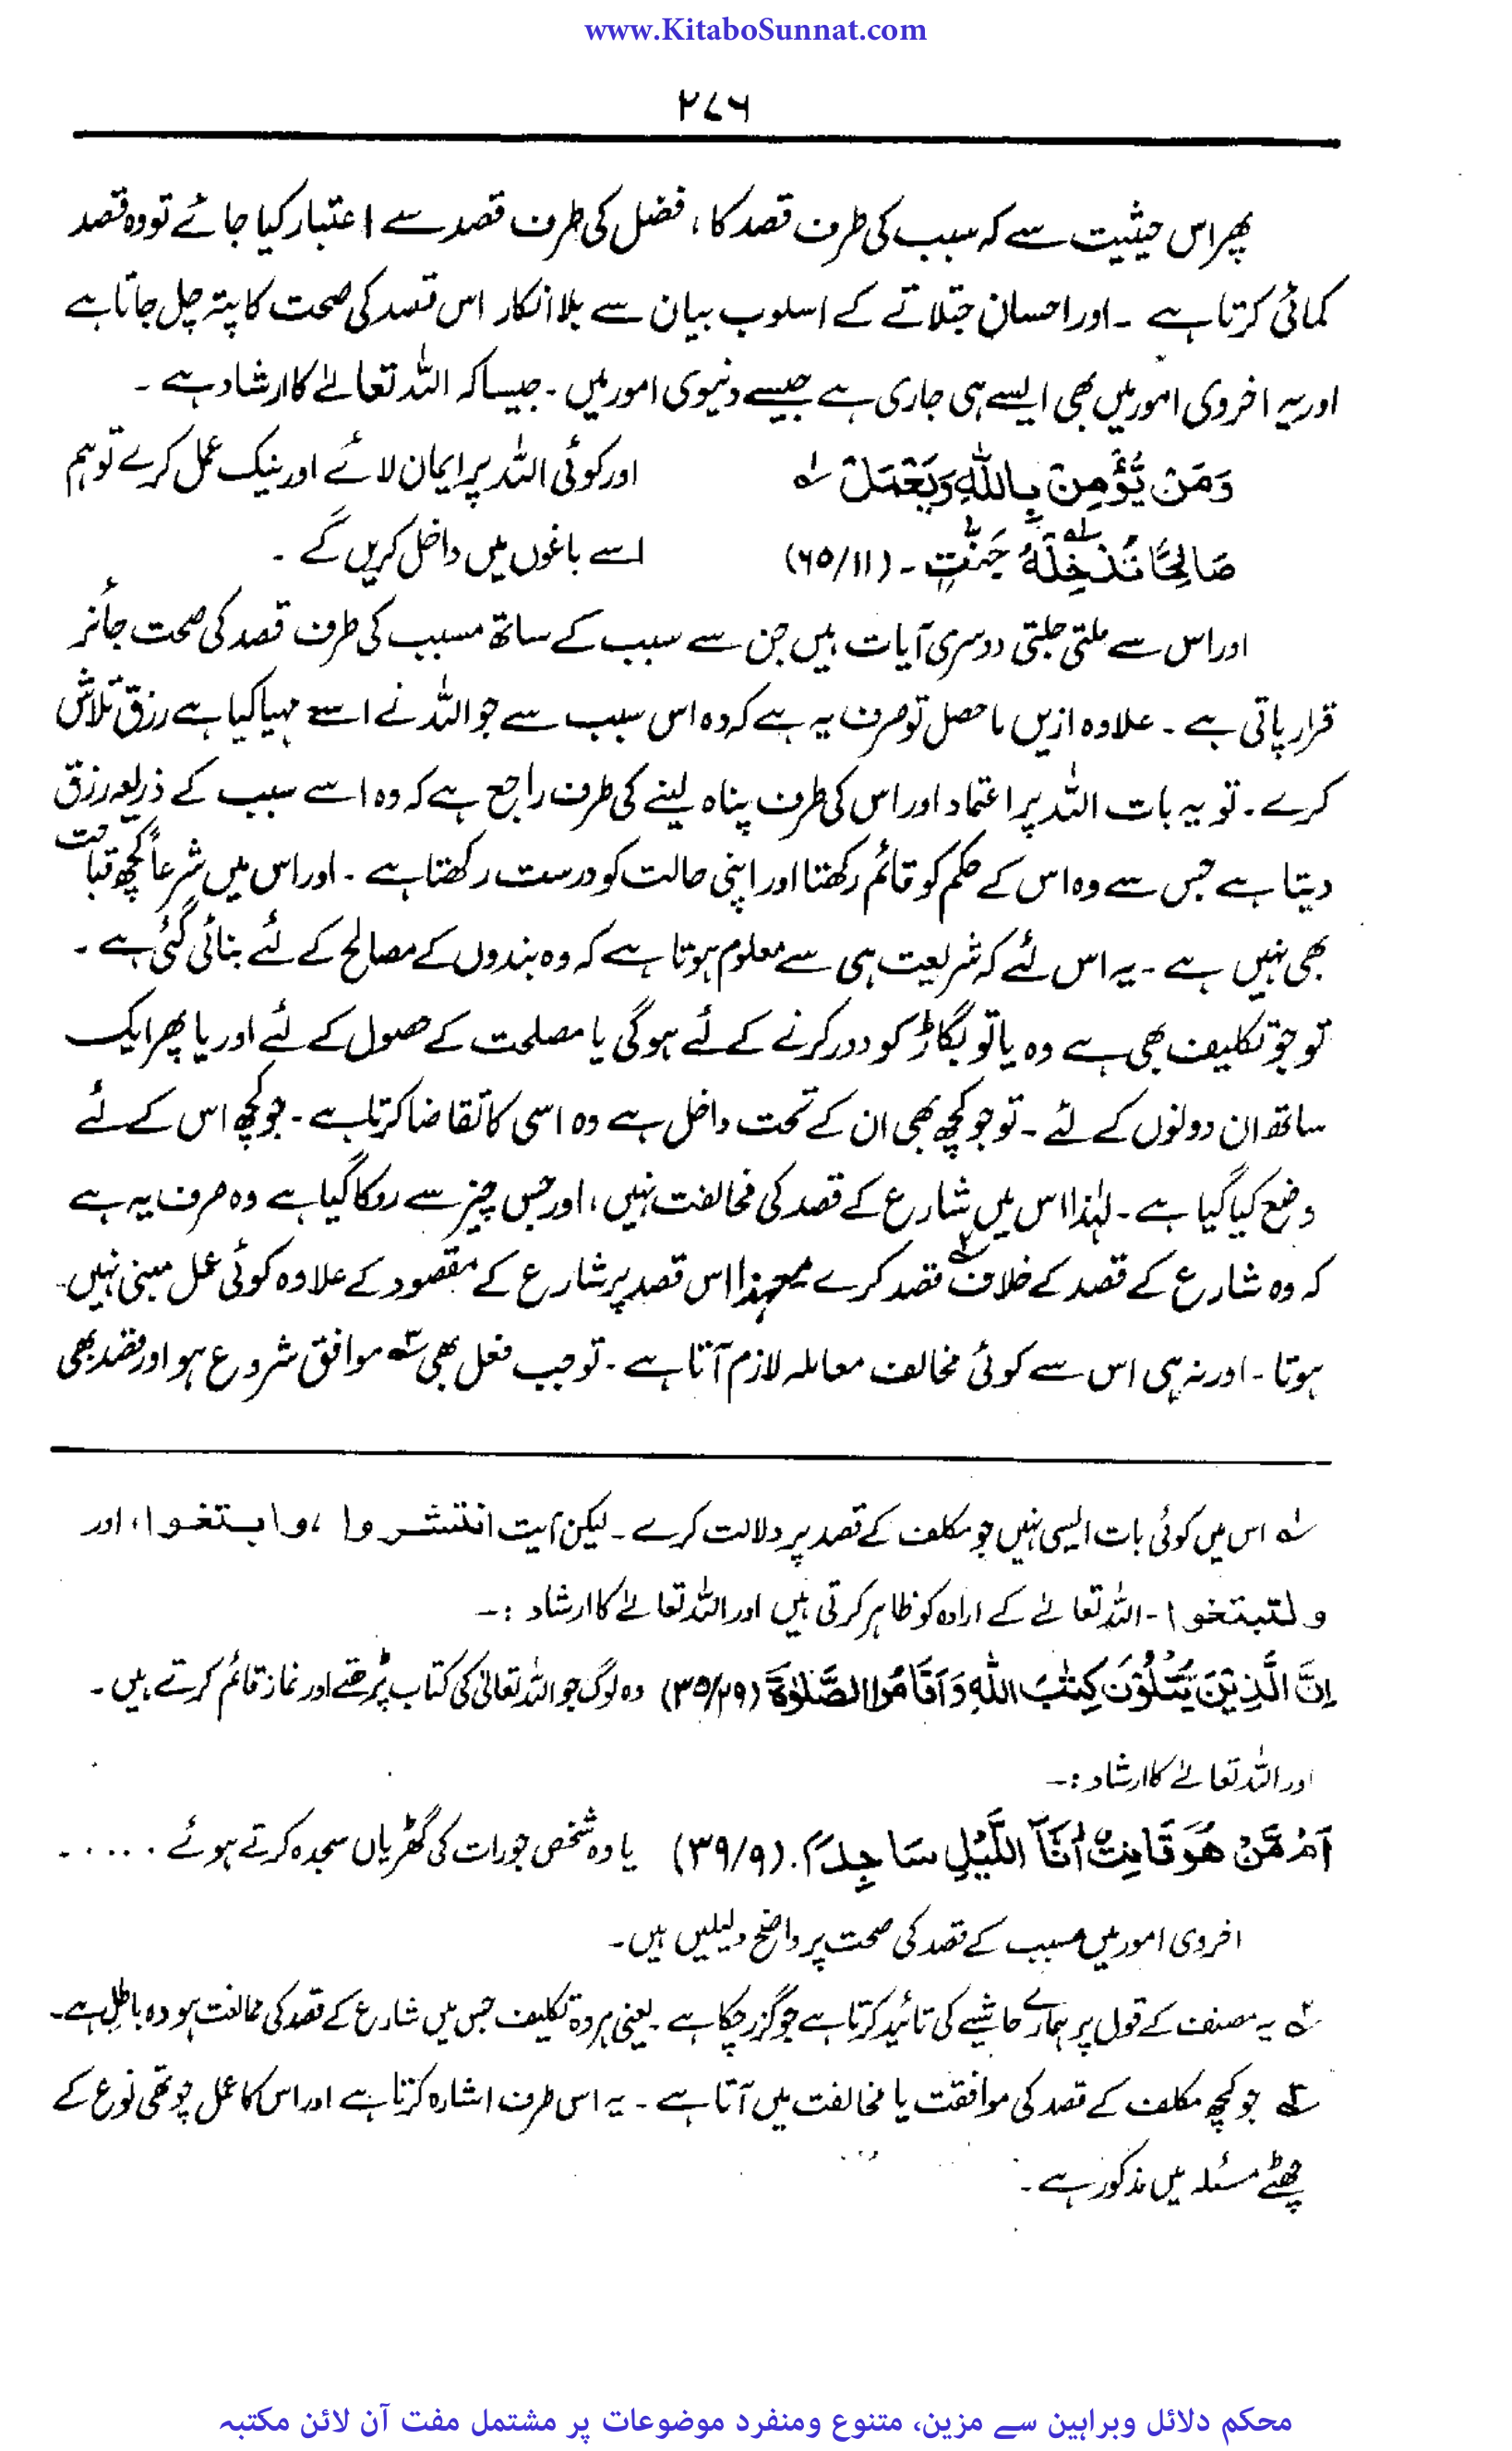 www.KitaboSunnat.com
۲۷۶
پھر اس حیثیت سے کہ سبب کی طرف قصد کا، فضل کی طرف قصد سے اعتبار کیا جائے تو وہ قصد
کمائی کرتا ہے ۔ اور احسان جتلانے کے اسلوب بیان سے بلا انکار اس قصد کی صحت کا پتہ چل جاتا ہے
اور یہ اخروی امور میں بھی ایسے ہی جاری ہے جیسے دنیوی امور میں ۔ جیسا کہ اللہ تعالےٰ کا ارشاد ہے ۔
وَمَنْ يُّؤْمِنْ بِاللّٰهِ وَيَعْمَلْ ؎۱ اور کوئی اللہ پر ایمان لائے اور نیک عمل کرے تو ہم
صَالِحًا نُّدْخِلْهُ جَنّٰتٍ ۔ (۶۵/۱۱) اسے باغوں میں داخل کریں گے ۔
اور اس سے ملتی جلتی دوسری آیات ہیں جن سے سبب کے ساتھ مسبب کی طرف قصد کی صحت جائز
قرار پاتی ہے ۔ علاوہ ازیں ماحصل تو صرف یہ ہے کہ وہ اس سبب سے جو اللہ نے اسے مہیا کیا ہے رزق تلاش
کرے ۔ تو یہ بات اللہ پر اعتماد اور اس کی طرف پناہ لینے کی طرف راجع ہے کہ وہ اسے سبب کے ذریعہ رزق
دیتا ہے جس سے وہ اس کے حکم کو قائم رکھتا اور اپنی حالت کو درست رکھتا ہے ۔ اور اس میں شرعاً کچھ قباحت
بھی نہیں ہے ۔ یہ اس لئے کہ شریعت ہی سے معلوم ہوتا ہے کہ وہ بندوں کے مصالح کے لئے بنائی گئی ہے ۔
تو جو تکلیف بھی ہے وہ یا تو بگاڑ کو دور کرنے کے لئے ہوگی یا مصلحت کے حصول کے لئے اور یا پھر ایک
ساتھ ان دونوں کے لئے ۔ تو جو کچھ بھی ان کے تحت داخل ہے وہ اسی کا تقاضا کرتا ہے ۔ جو کچھ اس کے لئے
وضع کیا گیا ہے ۔ لہٰذا اس میں شارع کے قصد کی مخالفت نہیں ، اور جس چیز سے روکا گیا ہے وہ صرف یہ ہے
کہ وہ شارع کے قصد کے خلاف ؎۲ قصد کرے معہذا اس قصد پر شارع کے مقصود کے علاوہ کوئی عمل مبنی نہیں
ہوتا ۔ اور نہ ہی اس سے کوئی مخالف معاملہ لازم آتا ہے ۔ تو جب فعل بھی ؎۳ موافق مشروع ہو اور قصد بھی
؎۱ اس میں کوئی بات ایسی نہیں جو مکلف کے قصد پر دلالت کرے ۔ لیکن آیت انتشروا ، وابتغوا، اور
ولتبتغوا ۔ اللہ تعالےٰ کے ارادہ کو ظاہر کرتی ہیں اور اللہ تعالےٰ کا ارشاد :۔
اِنَّ الَّذِيْنَ يَتْلُوْنَ كِتٰبَ اللّٰهِ وَاَقَامُوا الصَّلٰوةَ (۳۵/۲۹) وہ لوگ جو اللہ تعالیٰ کی کتاب پڑھتے اور نماز قائم کرتے ہیں ۔
اور اللہ تعالےٰ کا ارشاد :۔
اَمَّنْ هُوَ قَانِتٌ اٰنَآءَ الَّيْلِ سَاجِدًا. (۳۹/۹) یا وہ شخص جو رات کی گھڑیاں سجدہ کرتے ہوئے . . . . .
اخروی امور میں مسبب کے قصد کی صحت پر واضح دلیلیں ہیں ۔
؎۲ یہ مصنف کے قول پر ہمارے حاشیے کی تائید کرتا ہے جو گزر چکا ہے ۔ یعنی ہر وہ تکلیف جس میں شارع کے قصد کی مخالفت ہو وہ باطل ہے ۔
؎۳ جو کچھ مکلف کے قصد کی موافقت یا مخالفت میں آتا ہے ۔ یہ اس طرف اشارہ کرتا ہے اور اس کا عمل چوتھی نوع کے
چھٹے مسئلہ میں مذکور ہے ۔
محکم دلائل وبراہین سے مزین، متنوع ومنفرد موضوعات پر مشتمل مفت آن لائن مکتبہ